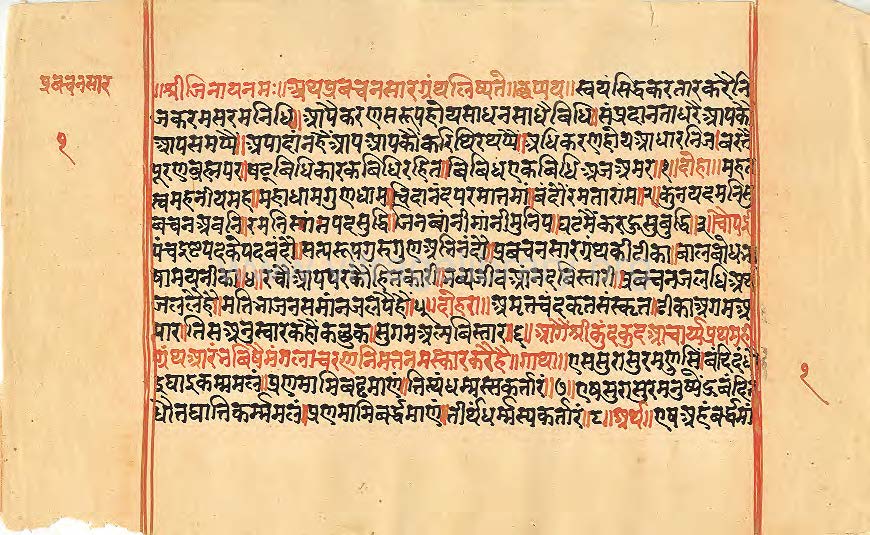 प्रबचनसार
१
॥श्रीजिनायनमः॥अथप्रबचनसारग्रंथलिष्यते॥छप्पय॥स्वयंसिद्धकरतारकरैनि
जकरमसरमनिधि॥आपैकरणसरूपहोयसाधनसाधैबिधि॥संप्रदाननाधरैआपकौ
आपसमप्पै॥अपादानहैआपआपकौंकरिथिरथप्पै॥अधिकरणहोयआधारनिजबरतै
पूरणब्रह्मपर॥षटबिधिकारकबिधिरहित॥बिबिधएकबिधिअजअमर॥१॥दोहा॥महत
त्वमहनीयमह॥महाधामगुणधाम॥चिदानंदपरमातमां॥बंदौंरमताराम॥२॥कुनयदमनिसु
बचनअवनि॥रमनिस्यातपदसुद्धि॥जिनबांनीमांनीमुनिप॥घटमैंकरऊसुबुद्धि॥३॥चौपई
पंचइष्टपदकेपदबंदौं॥सत्यरूपगुरुगुणअभिनंदौं॥प्रबचनसारग्रंथकीटीका॥बालबोधभा
षामयनीका॥४॥रचौंआपपरकौंहितकारी॥भव्यजीवआनंदबिस्तारी॥प्रबचनजलधिअरथ
जललैहै॥मतिभाजनसमांनजलपैहै॥५॥दोहरा॥अमृतचंदकृतसंस्कृत॥टीकाअगमअ
पार॥तिसअनुस्वारकहौंकछुक॥सुगमअल्पबिस्तार॥६॥आगैंश्रीकुंदकुंदआचार्यप्रथमही
ग्रंथआरंभबिषैमंगलाचरणनिमत्तनमस्कारकरैहै॥गाथा॥एससुरासुरमणुसिंबंदिदंधो
इघाइकम्ममलं॥प्रणमामिबट्टमाणं॥तित्थधम्मस्सकत्तारं॥७॥एषसुरासुरमनुष्येंद्रबंदितं
धौतघातिकर्म्ममलं॥प्रणमामिबर्द्धमाणं॥तीर्थधर्म्मस्यकर्तारं॥८॥अर्थ॥एषअहंबर्धमां
१